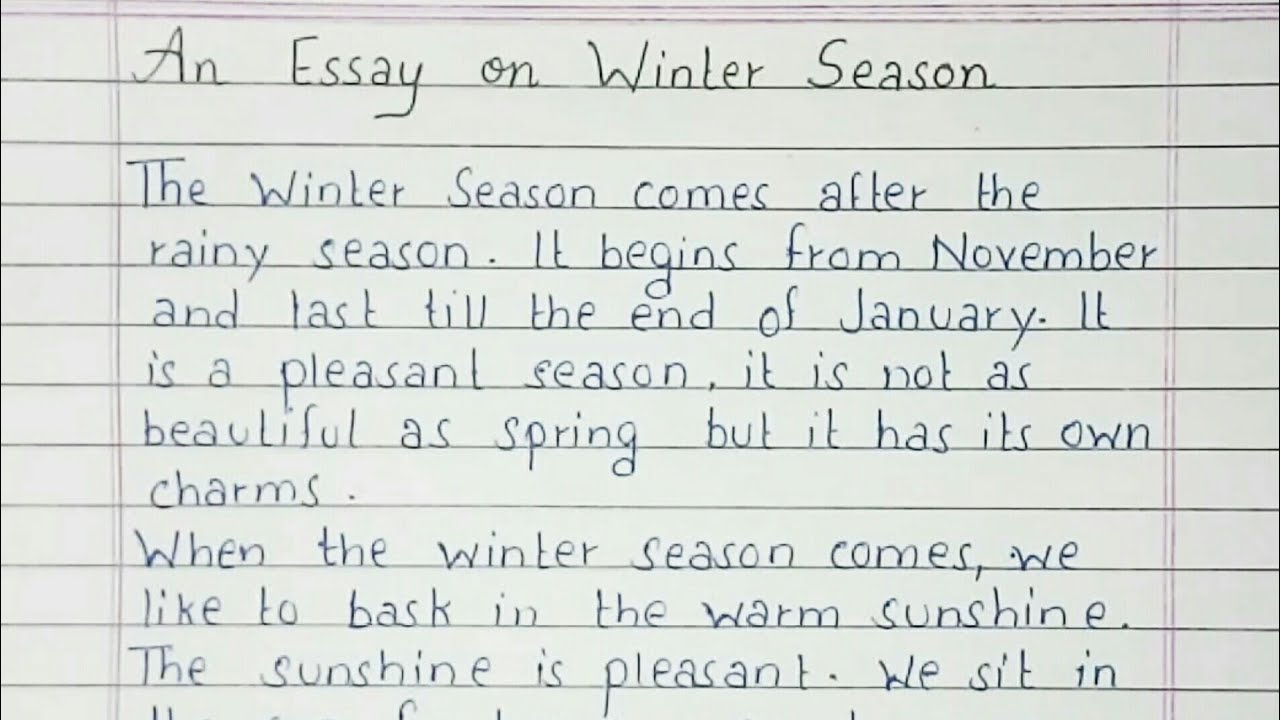 An Essay on Winter Season
The Winter Season comes after the
rainy season. It begins from November
and last till the end of January. It
is a pleasant season, it is not as
beautiful as spring but it has its own
charms.
When the winter season comes, we
like to bask in the warm sunshine.
The sunshine is pleasant. We sit in